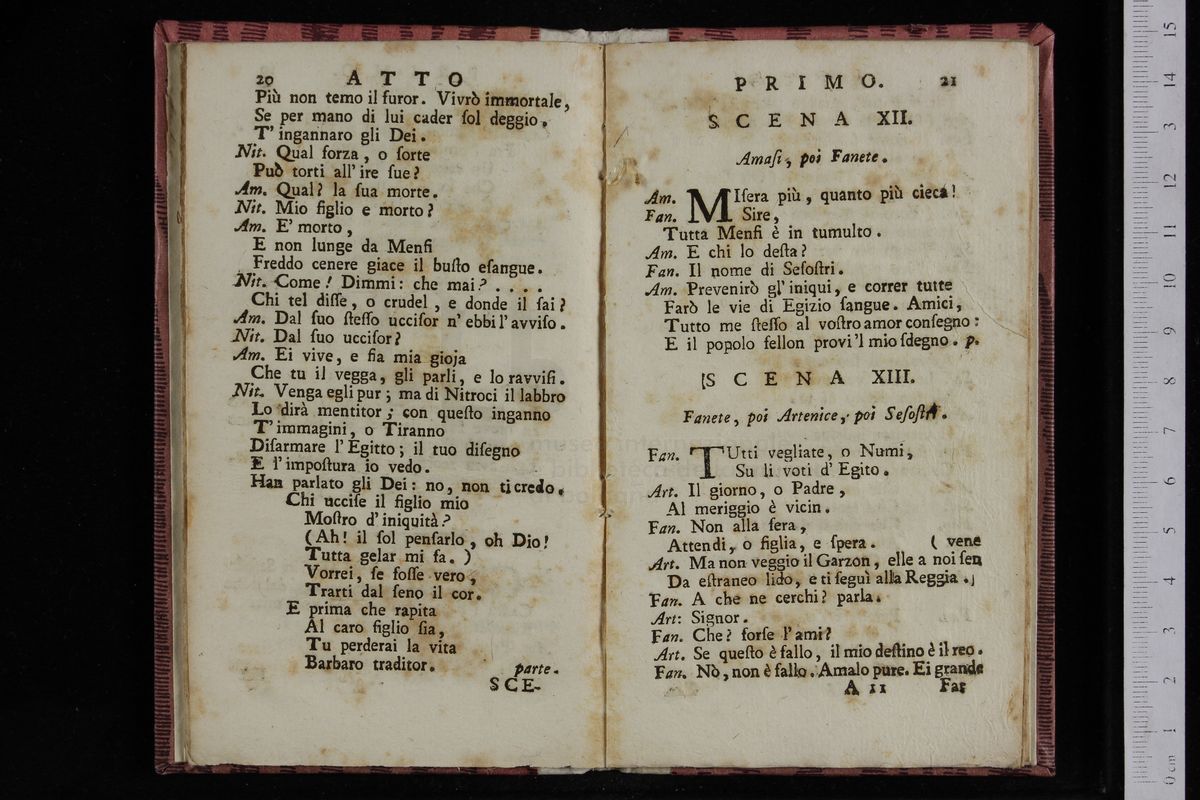 20 A T T O
Più non temo il furor. Vivrò immortale,
Se per mano di lui cader ſol deggio.
T' ingannaro gli Dei.
Nit. Qual forza, o ſorte
Può torti all' ire ſue?
Am. Qual? la ſua morte.
Nit. Mio figlio e morto?
Am. E' morto,
E non lunge da Menfi
Freddo cenere giace il buſto eſangue.
Nit. Come! Dimmi: che mai? . . . .
Chi tel diſſe, o crudel, e donde il ſai?
Am. Dal ſuo ſteſſo ucciſor n' ebbi l' avviſo.
Nit. Dal ſuo ucciſor?
Am. Ei vive, e fia mia gioja
Che tu il vegga, gli parli, e lo ravviſi.
Nit. Venga egli pur; ma di Nitroci il labbro
Lo dirà mentitor; con queſto inganno
T' immagini, o Tiranno
Diſarmare l' Egitto; il tuo diſegno
E l' impoſtura io vedo.
Han parlato gli Dei: no, non ti credo.
Chi ucciſe il figlio mio
Moſtro d' iniquità?
(Ah! il ſol penſarlo, oh Dio!
Tutta gelar mi fa.)
Vorrei, ſe foſſe vero,
Trarti dal ſeno il cor.
E prima che rapita
Al caro figlio ſia,
Tu perderai la vita
Barbaro traditor. parte.
SCE-
P R I M O. 21
S C E N A XII.
Amaſi, poi Fanete.
Am. MIſera più, quanto più cieca!
Fan. Sire,
Tutta Menfi è in tumulto.
Am. E chi lo deſta?
Fan. Il nome di Seſoſtri.
Am. Prevenirò gl' iniqui, e correr tutte
Farò le vie di Egizio ſangue. Amici,
Tutto me ſteſſo al voſtro amor conſegno:
E il popolo fellon provi 'l mio ſdegno. p.
S C E N A XIII.
Fanete, poi Artenice, poi Seſoſtri.
Fan. TUtti vegliate, o Numi,
Su li voti d' Egito.
Art. Il giorno, o Padre,
Al meriggio è vicin.
Fan. Non alla ſera,
Attendi, o figlia, e ſpera. ( vene
Art. Ma non veggio il Garzon, elle a noi ſen
Da eſtraneo lido, e ti ſeguì alla Reggia.
Fan. A che ne cerchi? parla.
Art: Signor.
Fan. Che? forſe l' ami?
Art. Se queſto è fallo, il mio deſtino è il reo.
Fan. Nò, non è fallo. Amalo pure. Ei grande
A 11 Far